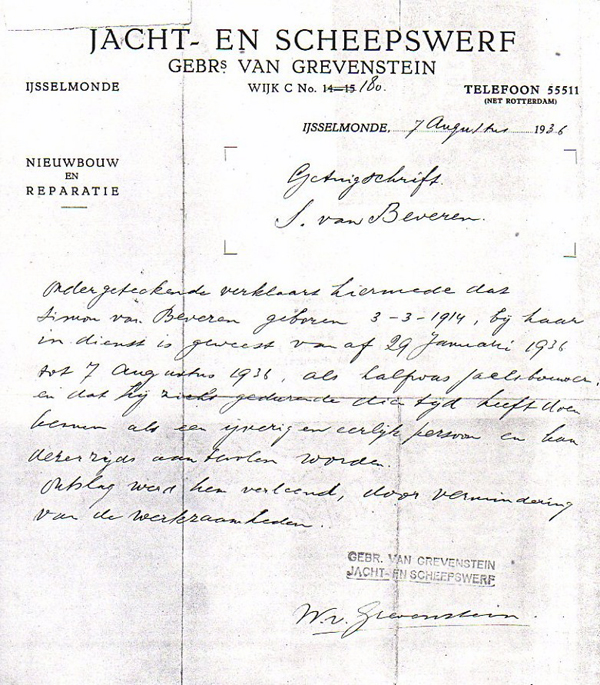 JACHT- EN SCHEEPSWERF
GEBRS VAN GREVENSTEIN
IJSSELMONDE
WIJK C No. 14=15 180.
TELEFOON 55511
(NET ROTTERDAM)
IJSSELMONDE, 7 Augustus 1936
NIEUWBOUW
EN
REPARATIE
Getuigschrift.
S. van Beveren.
Ondergeteekende verklaart hiermede dat
Simon van Beveren geboren 3-3-1914, bij haar
in dienst is geweest vanaf 29 Januari 1936
tot 7 Augustus 1936, als halfwas
en dat hij zich gedurende die tijd heeft doen
kennen als een ijverig en eerlijk persoon en kan
dezerzijds aanbevolen worden.
Ontslag werd hem verleend, door vermindering
van de werkzaamheden.
GEBR. VAN GREVENSTEIN
JACHT- EN SCHEEPSWERF
W. v. Grevenstein.